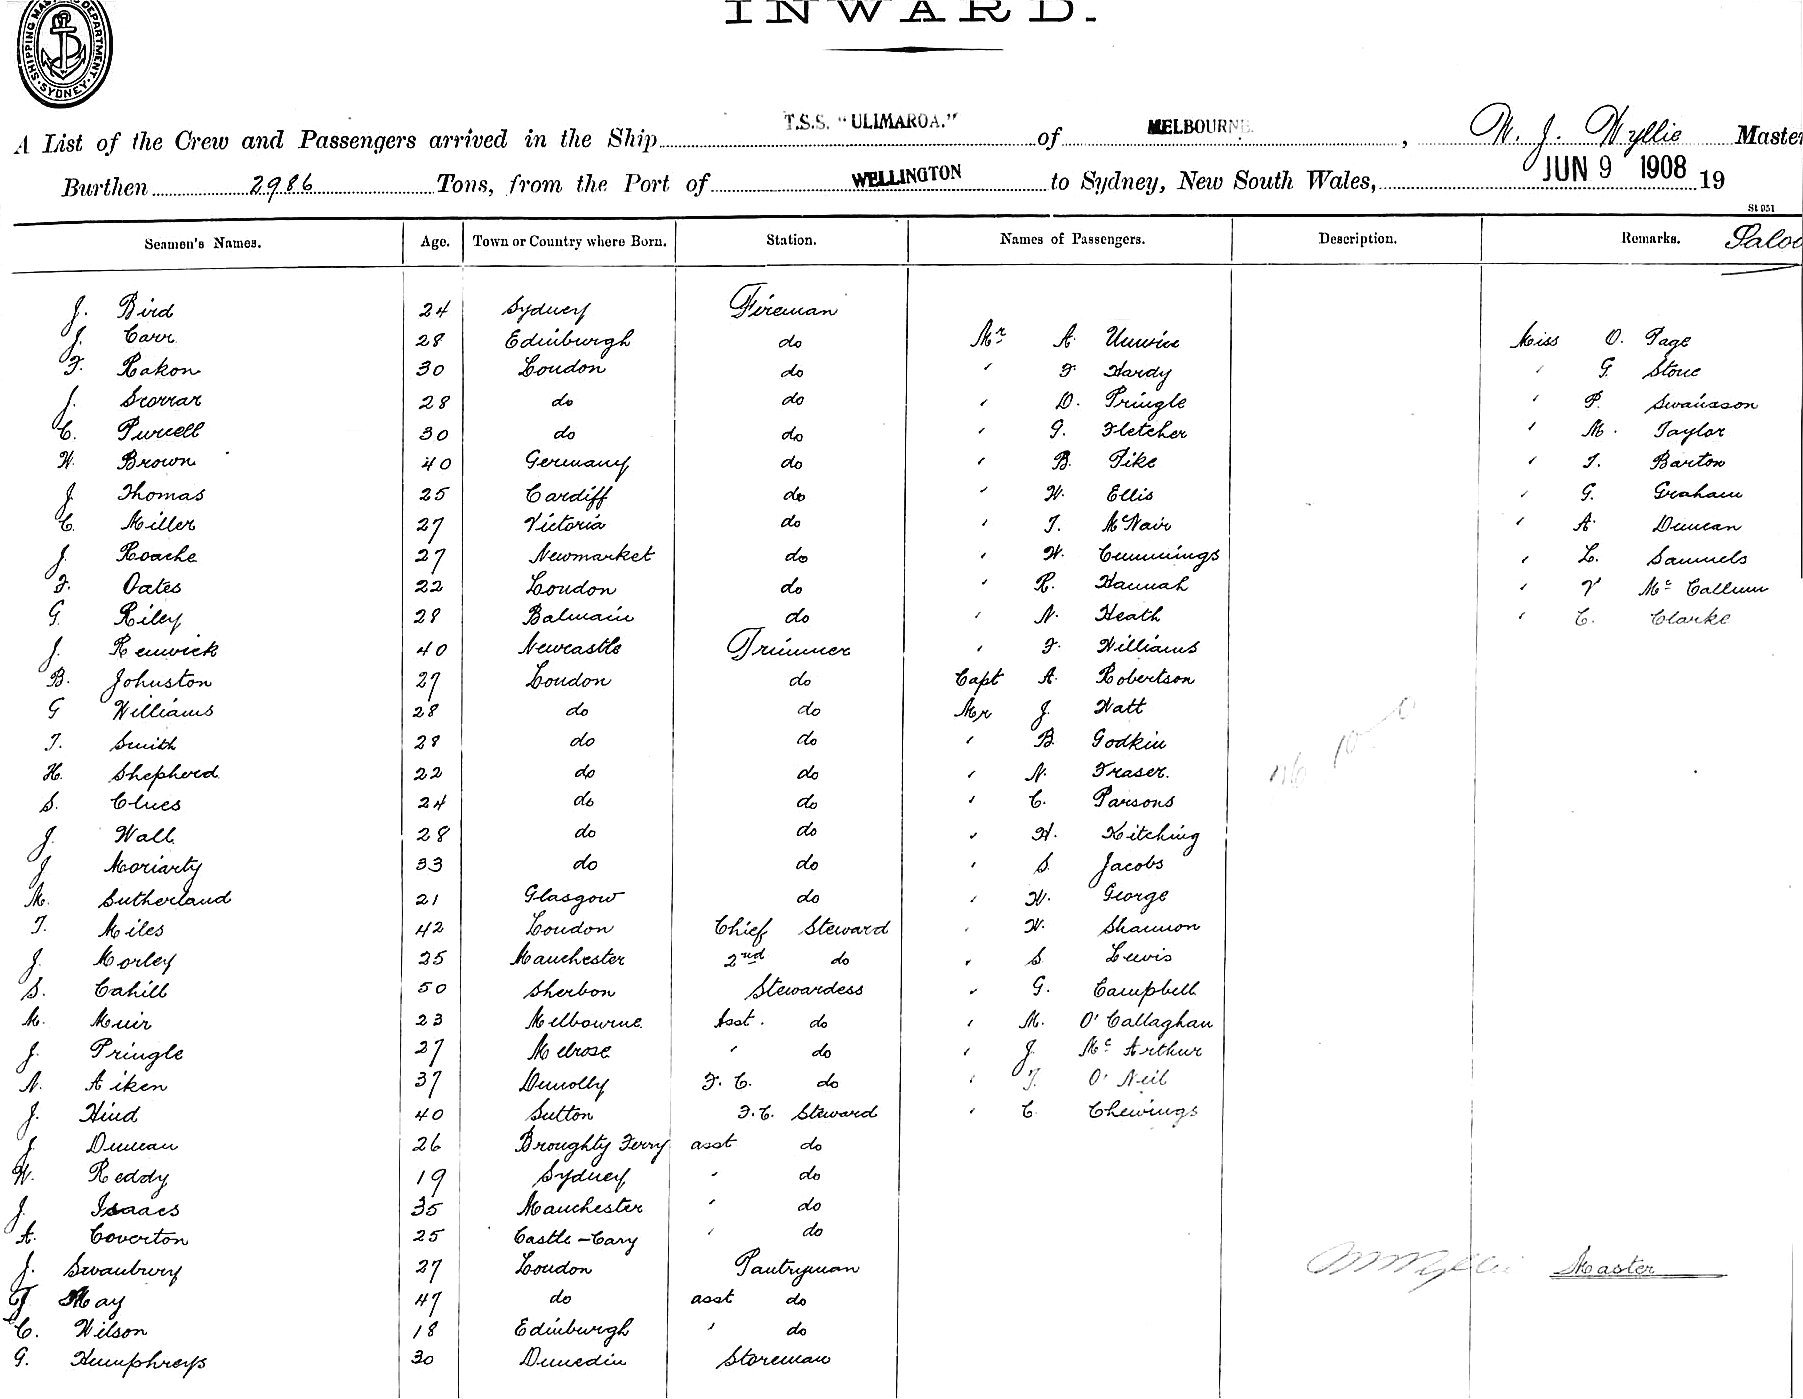 SHIPPING MASTER'S DEPARTMENT · SYDNEY ·
INWARD.
A List of the Crew and Passengers arrived in the Ship T.S.S. "ULIMAROA." of MELBOURNE, W. J. Wyllie Master
Burthen 2986 Tons, from the Port of WELLINGTON to Sydney, New South Wales, JUN 9 1908 19
St 051
Seamen's Names. Age. Town or Country where Born. Station. Names of Passengers. Description. Remarks. Saloo
J. Bird 24 Sydney Fireman
J. Carr 28 Edinburgh do Mr A. Unwin Miss O. Page
F. Rakon 30 London do " F Hardy " G Stone
J. Scorrar 28 do do " D. Pringle " P. Swainsson
C. Purcell 30 do do " G. Fletcher " M. Taylor
W. Brown 40 Germany do " B. Pike " T. Barton
J. Thomas 25 Cardiff do " W. Ellis " G. Graham
C. Miller 27 Victoria do " T. McNair " A Duncan
J. Roache 27 Newmarket do " W. Cummings " L. Samuels
F. Oates 22 London do " R. Hannah " V McCallum
G. Riley 28 Balmain do " N. Heath " C. Clarke
J. Renwick 40 Newcastle Trimmer " F. Williams
B. Johnston 27 London do Capt A. Robertson
G Williams 28 do do Mr J. Watt
T. Smith 28 do do " B. Godkin
H. Shepherd 22 do do " N. Fraser.
S. Clues 24 do do " C. Parsons
J. Wall 28 do do " H. Kitching
J Moriarty 33 do do " S. Jacobs
M. Sutherland 21 Glasgow do " W. George
T. Miles 42 London Chief Steward " W. Shannon
J. Morley 25 Manchester 2nd do " S Lewis
S. Cahill 50 Sherbon Stewardess " G. Campbell
M. Muir 23 Melbourne Asst. do " M. O'Callaghan
J. Pringle 27 Melrose " do " J McArthur
N. Aiken 37 Dunolly F. C. do " T. O'Neil
J. Hind 40 Sutton F.C. Steward " C. Chewings
J. Duncan 26 Broughty Ferry asst do
W. Reddy 19 Sydney " do
J. Isaacs 35 Manchester " do
A. Coverton 25 Castle-Cary " do
J. Swanbury 27 London Pantryman W J Wyllie Master
May 47 do asst do
C. Wilson 18 Edinburgh " do
G. Humphreys 30 Dunedin Storeman